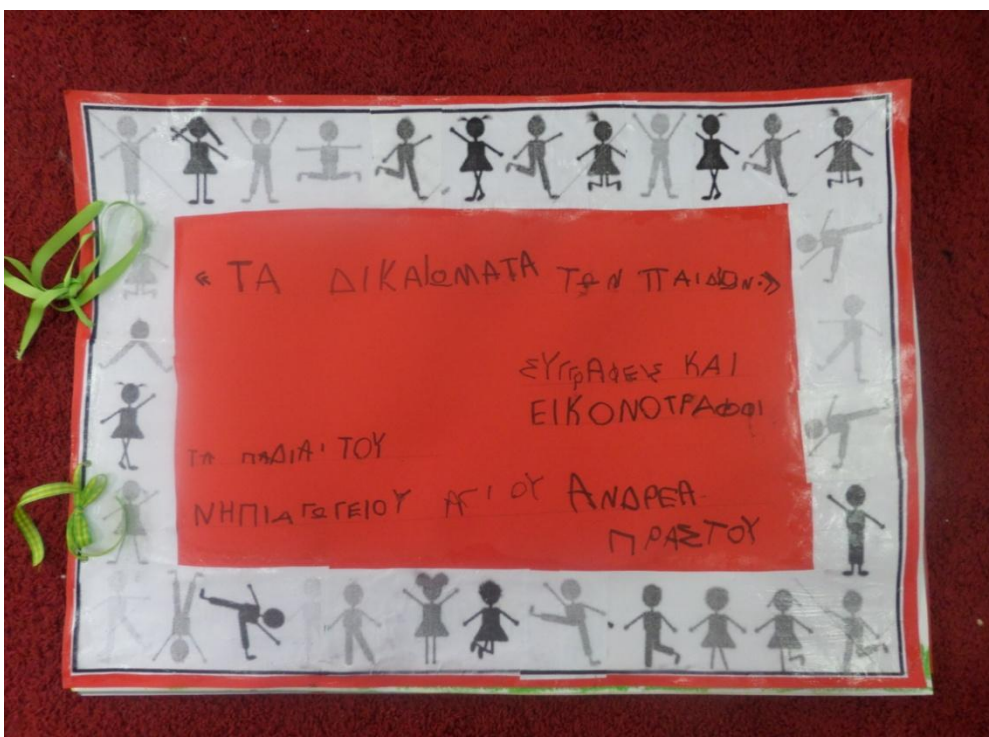 «ΤΑ ΔΙΚΑΙΩΜΑΤΑ ΤΩΝ ΠΑΙΔΙΩΝ.»
ΣΥΓΓΡΑΦΕΙΣ ΚΑΙ
ΕΙΚΟΝΟΓΡΑΦΟΙ
ΤΑ ΠΑΔΙΑ' ΤΟΥ
ΝΗΠΙΑΓΩΓΕΙΟΥ ΑΓΙΟΥ ΑΝΔΡΕΑ
ΠΡΑΣΤΟΥ